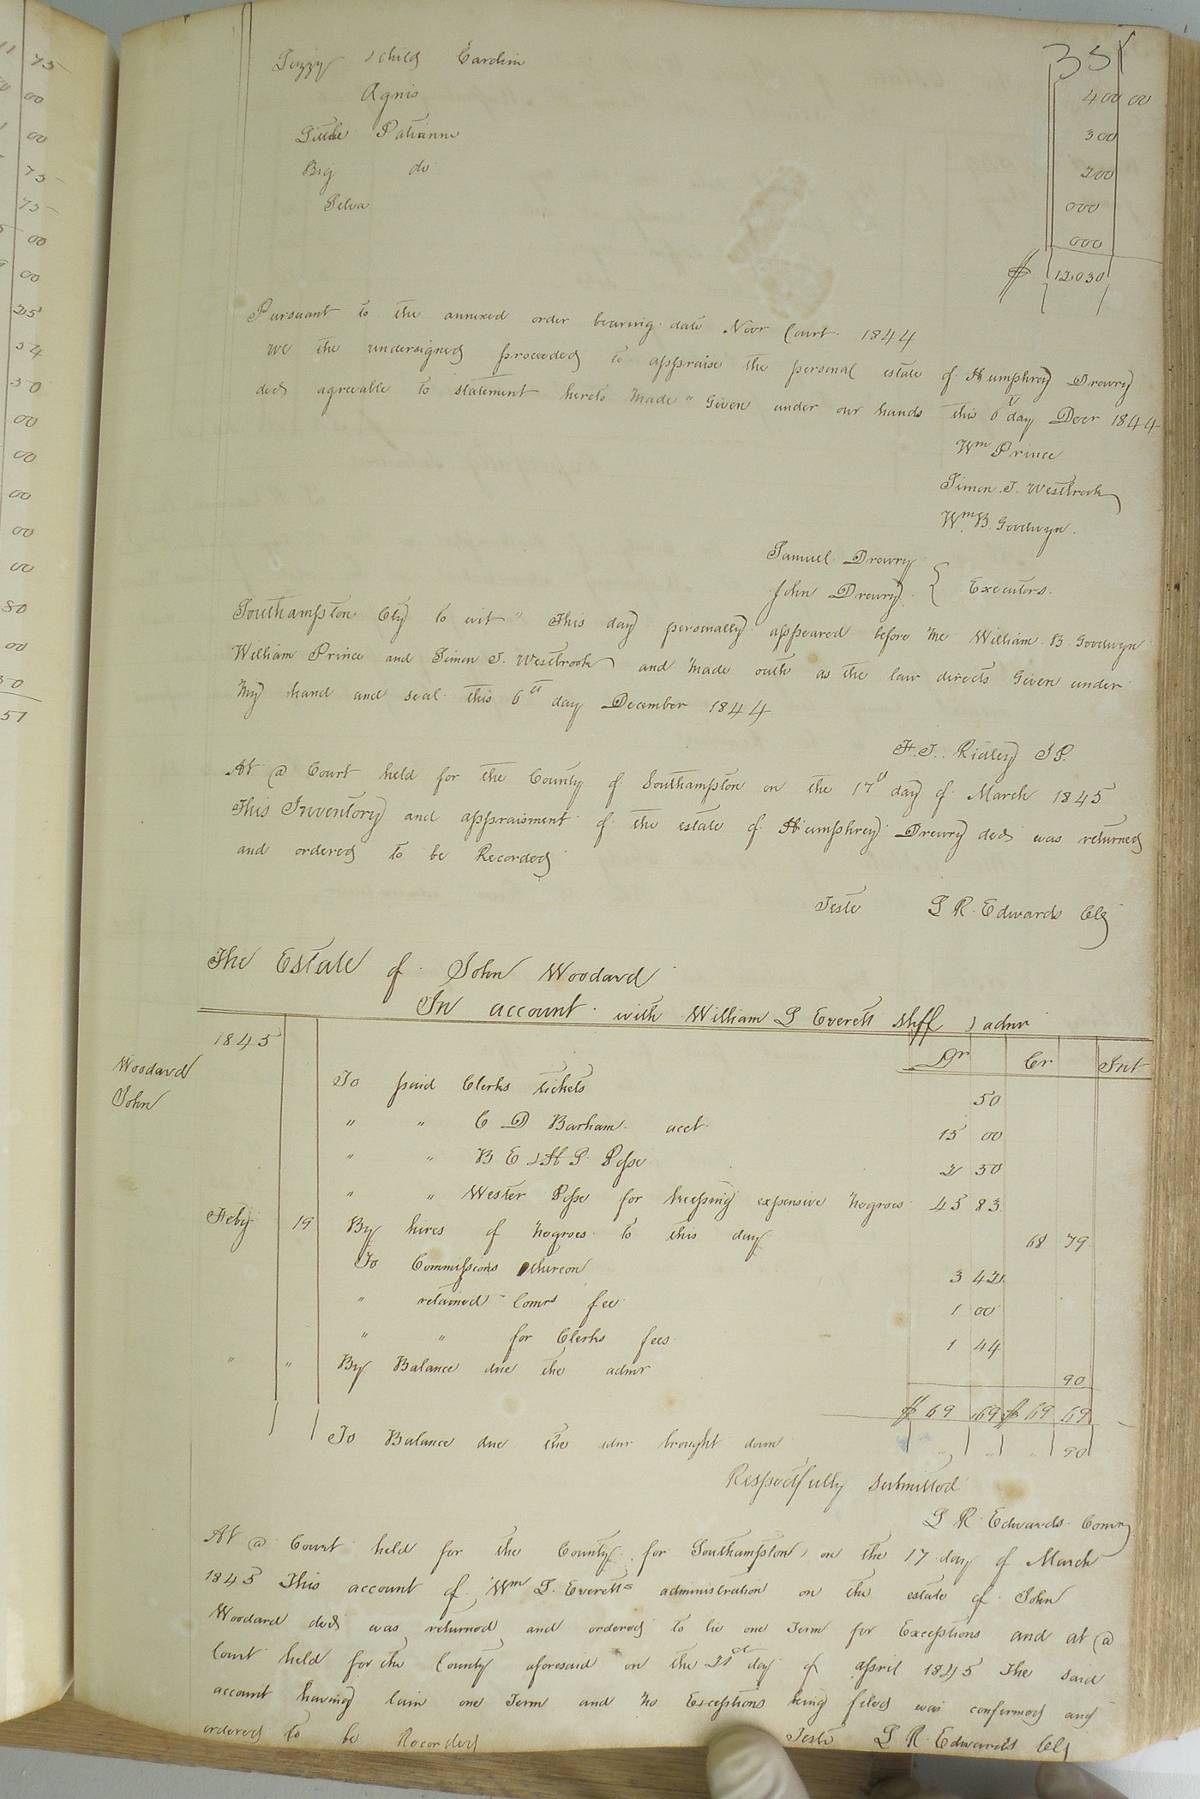 351
Suzzy & child Caroline 400 00
Agnis 300
Little Patianne 200
Big do 000
Selva 000
$ 12.030
Pursuant to the annexed order bearing date Novr Court 1844
we the undersigned proceeded to appraise the personal estate of Humphrey Drewry
decd agreeable to statement hereto made " Given under our hands this 6 day Decr 1844
Wm Prince
Simon T. Westbrook
Wm B. Goodwyn
Samuel Drewry
John Drewry } Executors.
Southampton Cty to wit " This day personally appeared before me William B Goodwyn
William Prince and Simon T. Westbrook and made oath as the law directs Given under
my hand and seal this 6th day December 1844
F. T. Ridley JP.
At @ Court held for the County of Southampton on the 17th day of March 1845
This Inventory and appraisment of the estate of Humphrey Drewry decd was returned
and ordered to be Recorded
Teste L R. Edwards Clk
The Estate of John Woodard
In account with William L Everett Shff & admr
1845 Dr Cr Int
Woodard
John
To paid Clerks tickets 50
" " C D Barham acct 15 00
" " B E & H P Pope 2 50
" " Wester Pope for keeping expensive negroes 45 83
Feby 19 By hires of negroes to this day 68 79
To Commissions thereon 3 42
" retained Comrs fee 1 00
" " for Clerks fees 1 44
" " By Balance due the admr 90
$ 69 69 $ 69 69
To Balance due the admr brought down 90
Respectfully submitted
L R. Edwards Comr
At @ Court held for the County for Southampton on the 17 day of March
1845 This account of Wm L. Everetts administration on the estate of John
Woodard decd was returned and ordered to lie one Term for Exceptions and at @
Court held for the County aforesaid on the 21st day of april 1845 The said
account having lain one Term and no Exceptions being filed was confirmed and
ordered to be Recorded Teste L R. Edwards Clk